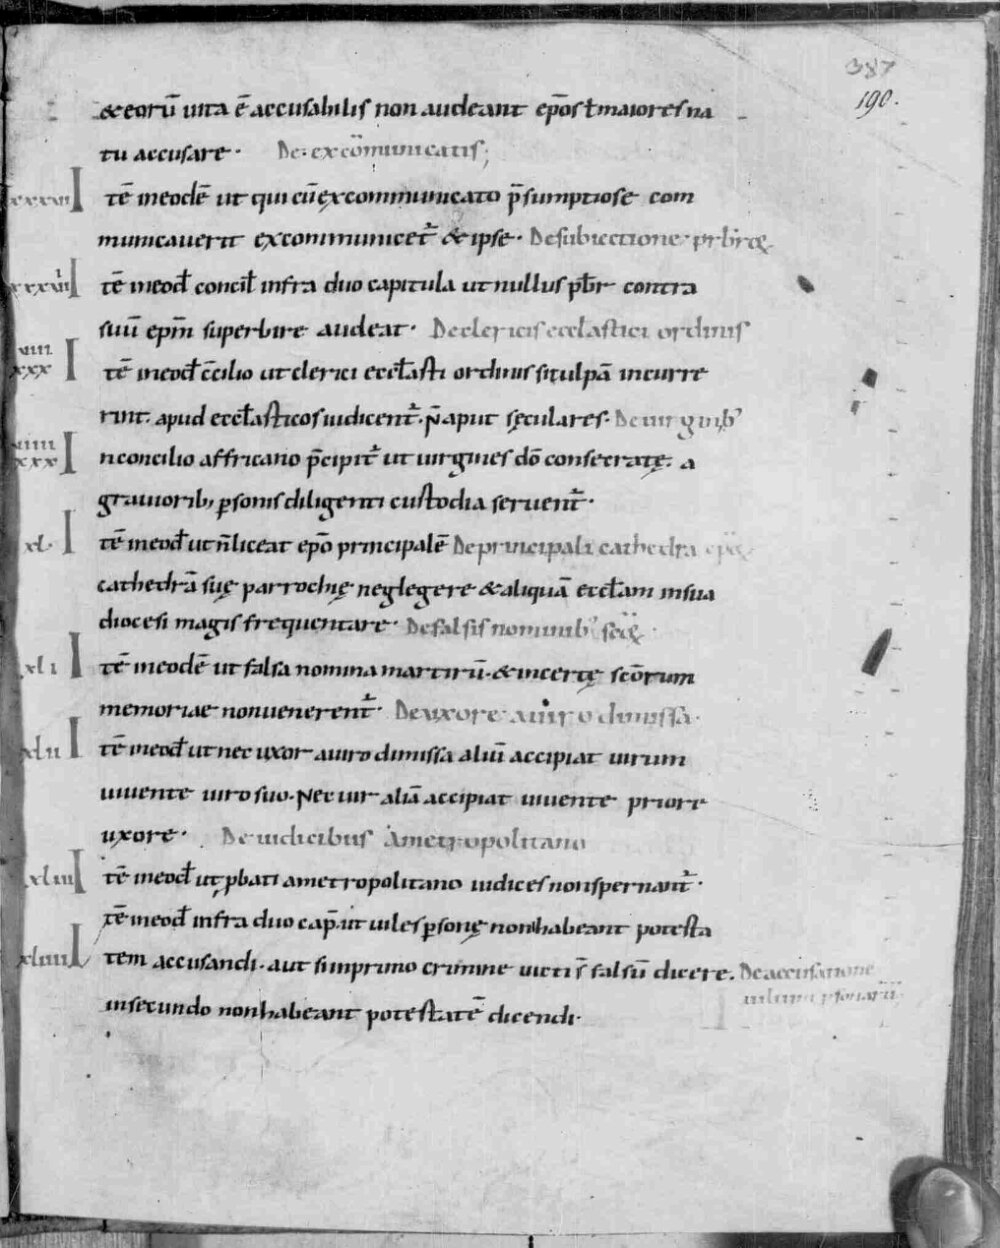 387
190.
&eorū uita ē accusabilis non audeant ep̄os ł maiores na
tu accusare · De excōmunicatis;
xxxvii Itē ineodē ut qui cū excommunicato p̄sumptiose com
municauerit excommunicet̄ & ipse · De subiectione prbr̄ę
Itē ineod concil infra duo capitula ut nullus pb̄r contra
suū ep̄m superbire audeat · De clericis ecclastici ordinis
viii
xxx Itē ineod c̄cilio ut clerici eccłasti ordinis si culpā incurre
rint. apud eccłasticos iudicent̄ · n̄ aput sęculares · De uirginib'
viiii
xxx In concilio affricano p̄cipit̄ ut uirgines dō consecratę. a
grauiorib; p̱sonis diligenti custodia seruent̄ ·
xl· Itē ineod ut n̄ liceat ep̄o principalē De principali cathedra
cathedrā suę parrochię neglegere & aliquā eccłam insua
diocesi magis frequentare · De falsis nominib' scōꝝ
xli Itē ineodē ut falsa nomina martirū · & incertę scōrum
memoriae nonuenerent̄ · De uxore a uiro dimissa ·
xlii Itē ineod ut nec uxor auiro dimissa aliū accipiat uirum
uiuente uiro suo · Nec uir aliā accipiat uiuente priore
uxore · De iudicibus Ametropolitano
xliii Itē ineod ut ꝓbati ametropolitano iudices nonspernant̄ ·
xliiii Itē ineod infra duo cap̄. ut uiles p̱sonę nonhabeant potesta
tem accusandi · aut siinprimo crimine uicti s̄ falsū dicere. De accusatione
uilium p̱sonarū
insecundo nonhabeant potestatē dicendi ·